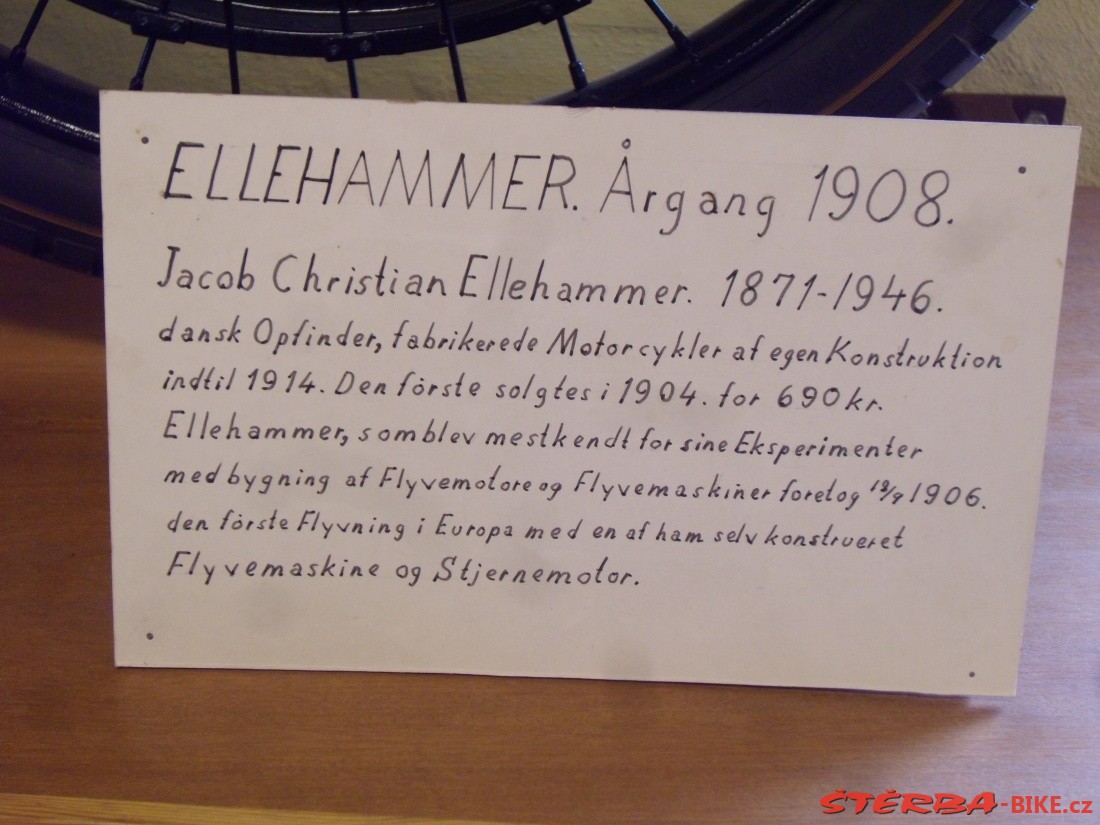 ELLEHAMMER. Årgang 1908.
Jacob Christian Ellehammer. 1871-1946.
dansk Opfinder, fabrikerede Motorcykler af egen Konstruktion
indtil 1914. Den förste solgtes i 1904. for 690 kr.
Ellehammer, som blev mest kendt for sine Eksperimenter
med bygning af Flyvemotore og Flyvemaskiner foretog 12/9 1906.
den förste Flyvning i Europa med en af ham selv konstrueret
Flyvemaskine og Stjernemotor.
ŠTĚRBA-BIKE.cz